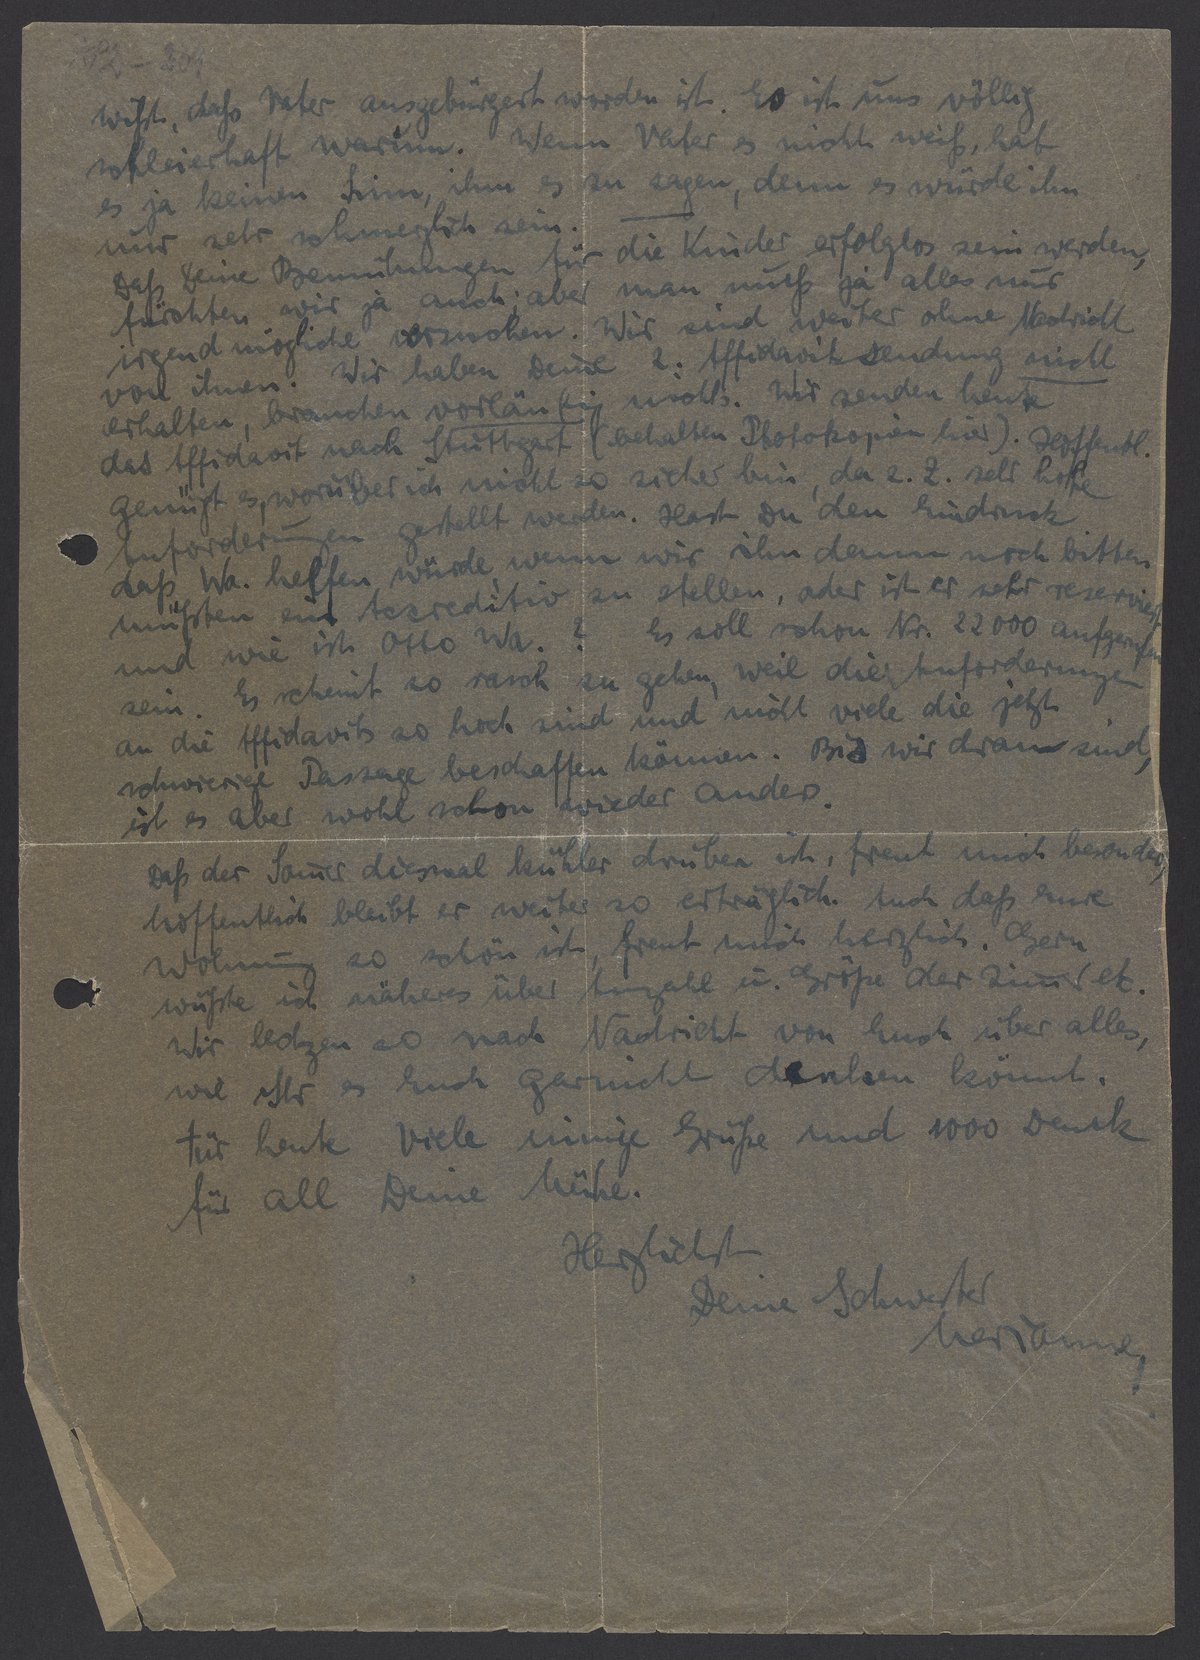 wißt, daß Vater ausgebürgert worden ist. Es ist uns völlig
schleierhaft warum. Wenn Vater es nicht weiß, hat
es ja keinen Sinn, ihm es zu sagen, denn es würde ihm
nur sehr schmerzlich sein.
Daß Deine Bemühungen für die Kinder erfolglos sein werden,
fürchten wir ja auch, aber man muß ja alles nur
irgend mögliche versuchen. Wir sind weiter ohne Nachricht
von ihnen. Wir haben Deine 2. Affidavit sendung nicht
erhalten, brauchen vorläufig nichts. Wir senden heute
das Affidavit nach Stuttgart (behalten Photokopien hier). Hoffentl.
genügt es, worüber ich nicht so sicher bin, da z. Z. sehr hohe
Anforderungen gestellt werden. Hast Du den Eindruck
daß Wa. helfen würde wenn wir ihn dann noch bitten
müßten ein Akkreditiv zu stellen, oder ist er sehr reserviert
und wie ist Otto Wa.? Es soll schon Nr. 22000 aufgerufen
sein. Es scheint so rasch zu gehen, weil die Anforderungen
an die Affidavits so hoch sind und nicht viele die jetzt
schwierige Passage beschaffen können. Bis wir dran sind,
ist es aber wohl schon wieder anders.
Daß der Somer diesmal kühler drüben ist, freut mich besonders,
hoffentlich bleibt er weiter so erträglich. Auch daß Eure
Wohnung so schön ist, freut mich herzlich. Gern
wüßte ich näheres über Anzahl u. Größe der Zimer etc.
Wir lechzen so nach Nachricht von Euch über alles,
wie Ihr es Euch garnicht denken könnt.
Für heute viele innige Grüße und 1000 Dank
für all Deine Mühe.
Herzlichst
Deine Schwester
Marianne,